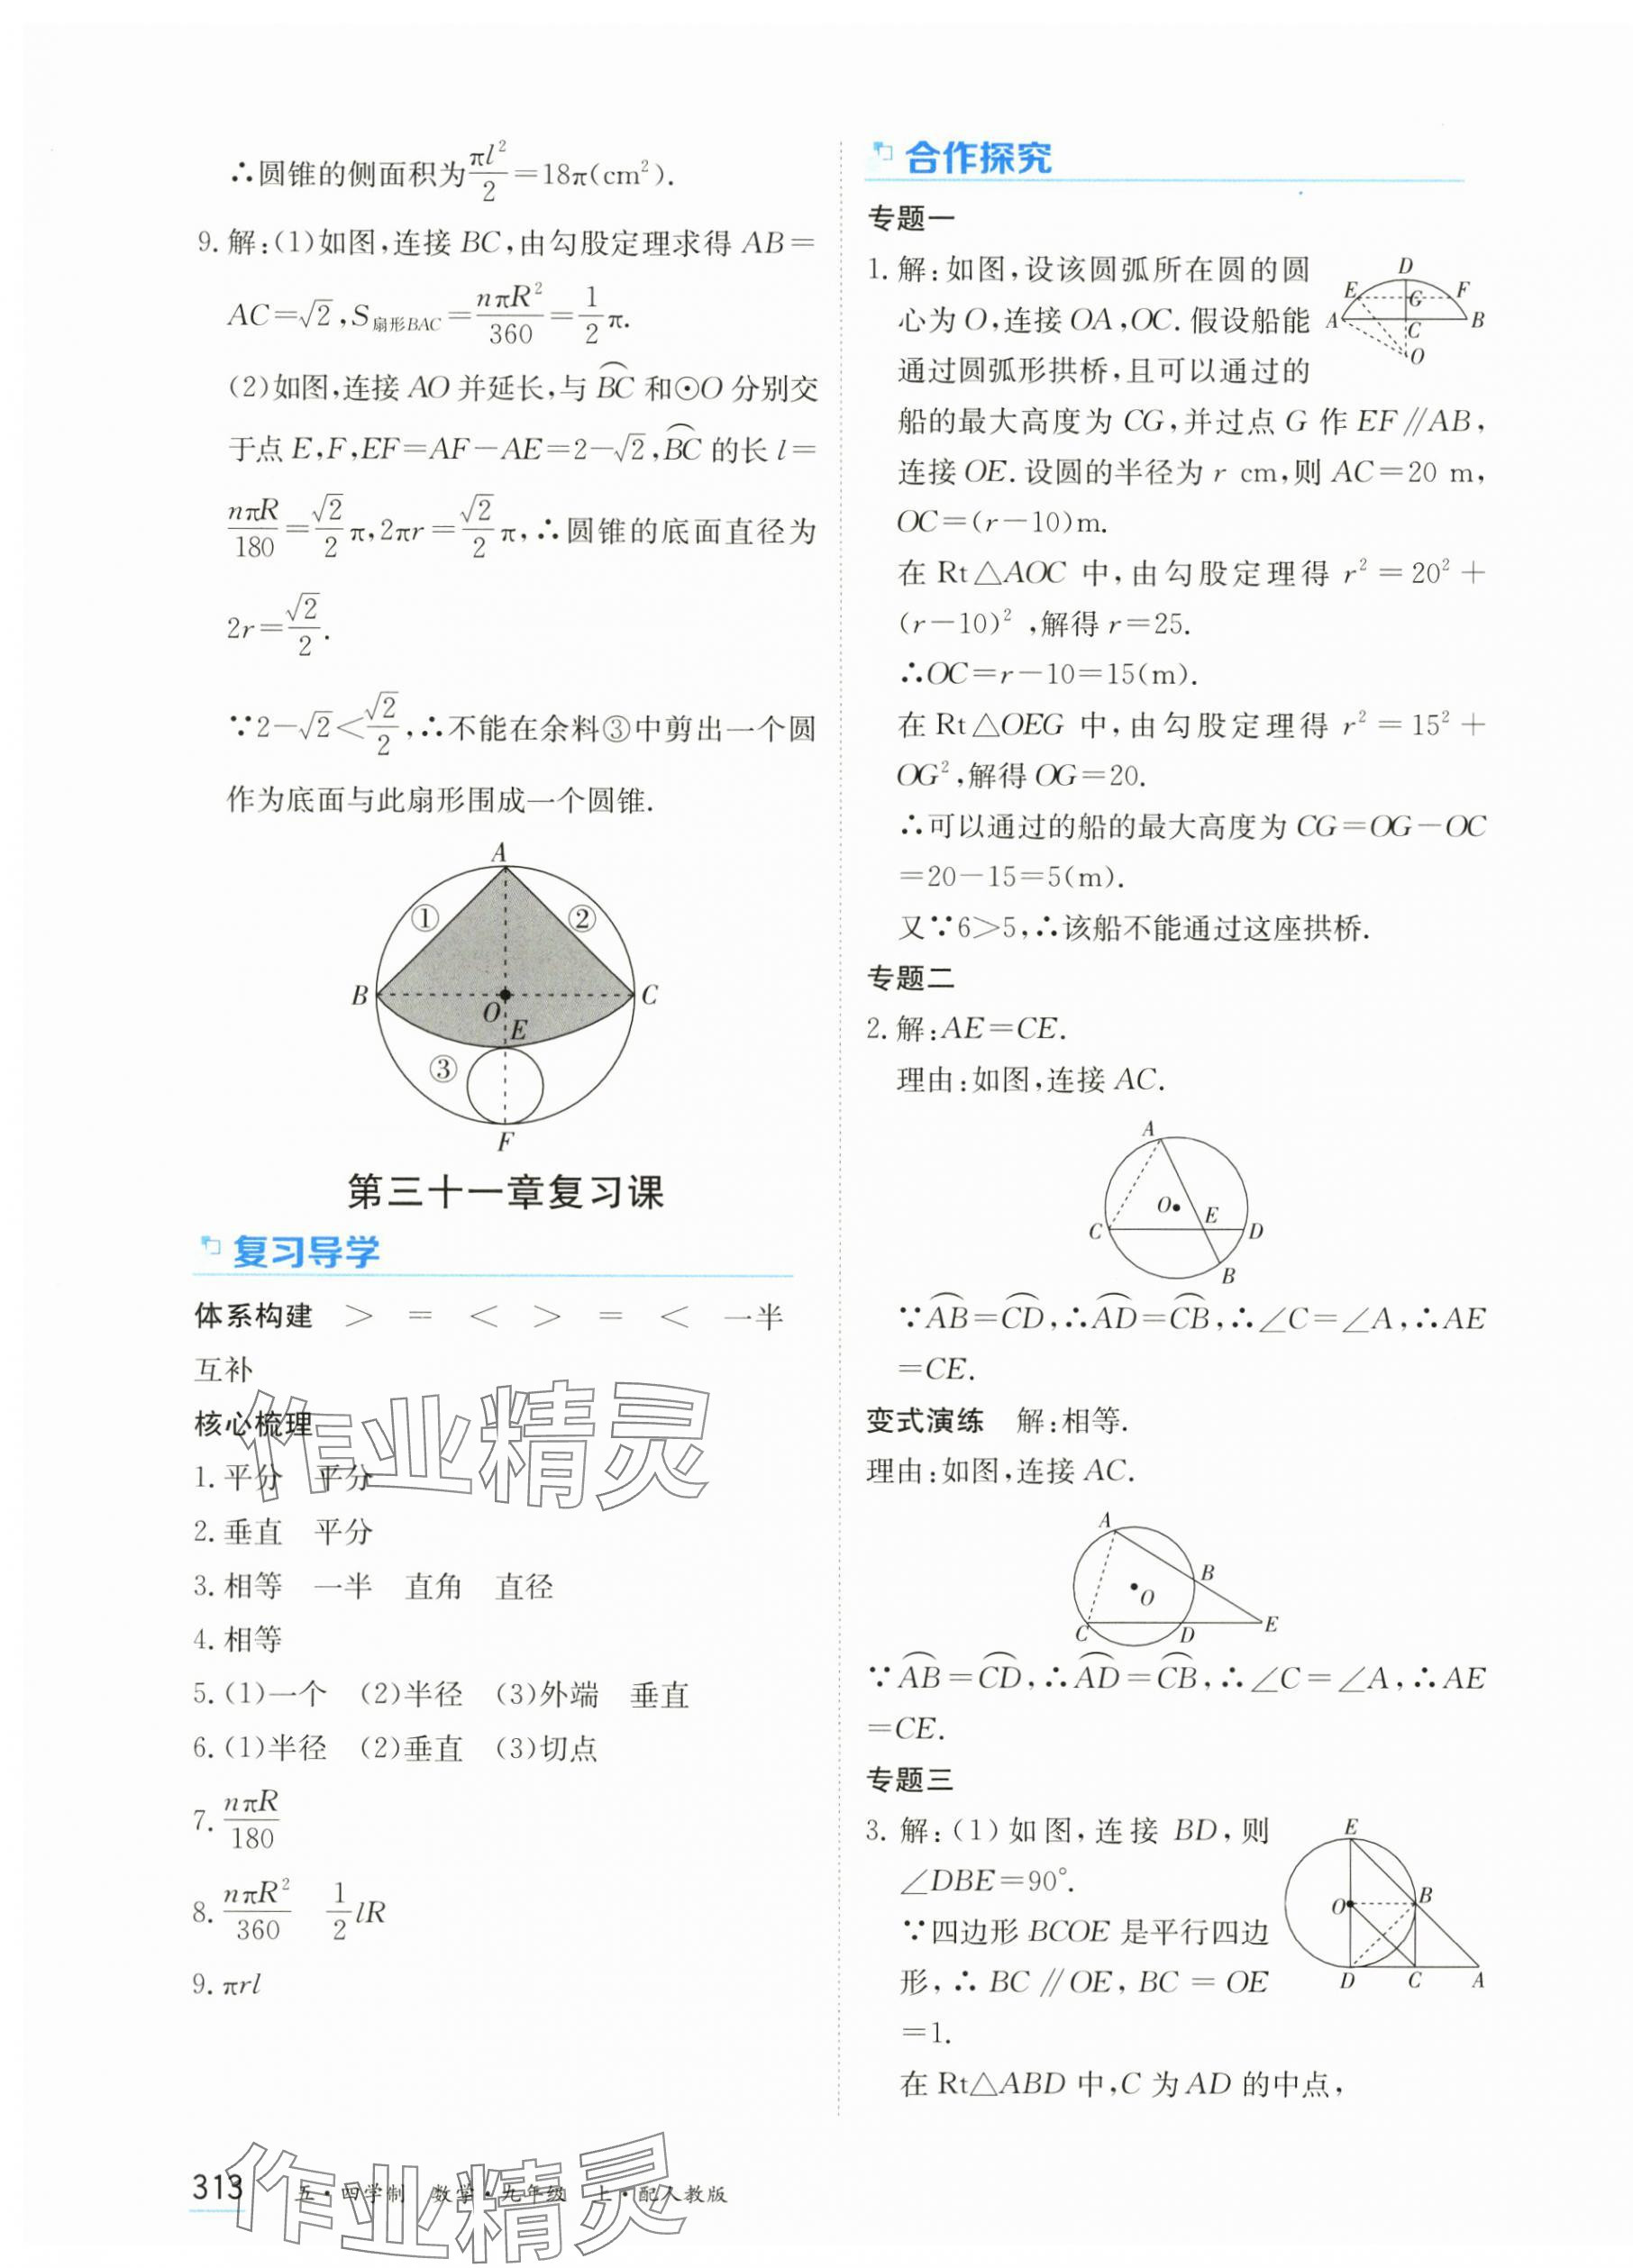 ∴圆锥的侧面积为πl²/2=18π(cm²).
9.解:(1)如图,连接 BC,由勾股定理求得 AB=
AC=√2,S扇形BAC=nπR²/360=1/2π.
(2)如图,连接 AO 并延长,与 BC⌒ 和⊙O 分别交
于点 E,F,EF=AF-AE=2-√2,BC⌒ 的长 l=
nπR/180=√2/2π,2πr=√2/2π,∴圆锥的底面直径为
2r=√2/2.
∵2-√2<√2/2,∴不能在余料③中剪出一个圆
作为底面与此扇形围成一个圆锥.
A
① ②
B O C
E
③
F
第三十一章复习课
复习导学
体系构建 > = < > = < 一半
互补
核心梳理
1.平分 平分
2.垂直 平分
3.相等 一半 直角 直径
4.相等
5.(1)一个 (2)半径 (3)外端 垂直
6.(1)半径 (2)垂直 (3)切点
7. nπR/180
8. nπR²/360 1/2lR
9. πrl
合作探究
专题一
1.解:如图,设该圆弧所在圆的圆
心为 O,连接 OA,OC.假设船能
通过圆弧形拱桥,且可以通过的
船的最大高度为 CG,并过点 G 作 EF∥AB,
连接 OE.设圆的半径为 r cm,则 AC=20 m,
OC=(r-10)m.
在 Rt△AOC 中,由勾股定理得 r²=20²+
(r-10)²,解得 r=25.
∴OC=r-10=15(m).
在 Rt△OEG 中,由勾股定理得 r²=15²+
OG²,解得 OG=20.
∴可以通过的船的最大高度为 CG=OG-OC
=20-15=5(m).
又∵6>5,∴该船不能通过这座拱桥.
D
E G F
A C B
O
专题二
2.解:AE=CE.
理由:如图,连接 AC.
A
O E
C D
B
∵AB⌒=CD⌒,∴AD⌒=CB⌒,∴∠C=∠A,∴AE
=CE.
变式演练 解:相等.
理由:如图,连接 AC.
A
B
O
C D E
∵AB⌒=CD⌒,∴AD⌒=CB⌒,∴∠C=∠A,∴AE
=CE.
专题三
3.解:(1)如图,连接 BD,则
∠DBE=90°.
∵四边形 BCOE 是平行四边
形,∴BC∥OE,BC=OE
=1.
在 Rt△ABD 中,C 为 AD 的中点,
E
O B
D C A
313 五·四学制 数学·九年级 上·配人教版
作业精灵
作业精灵